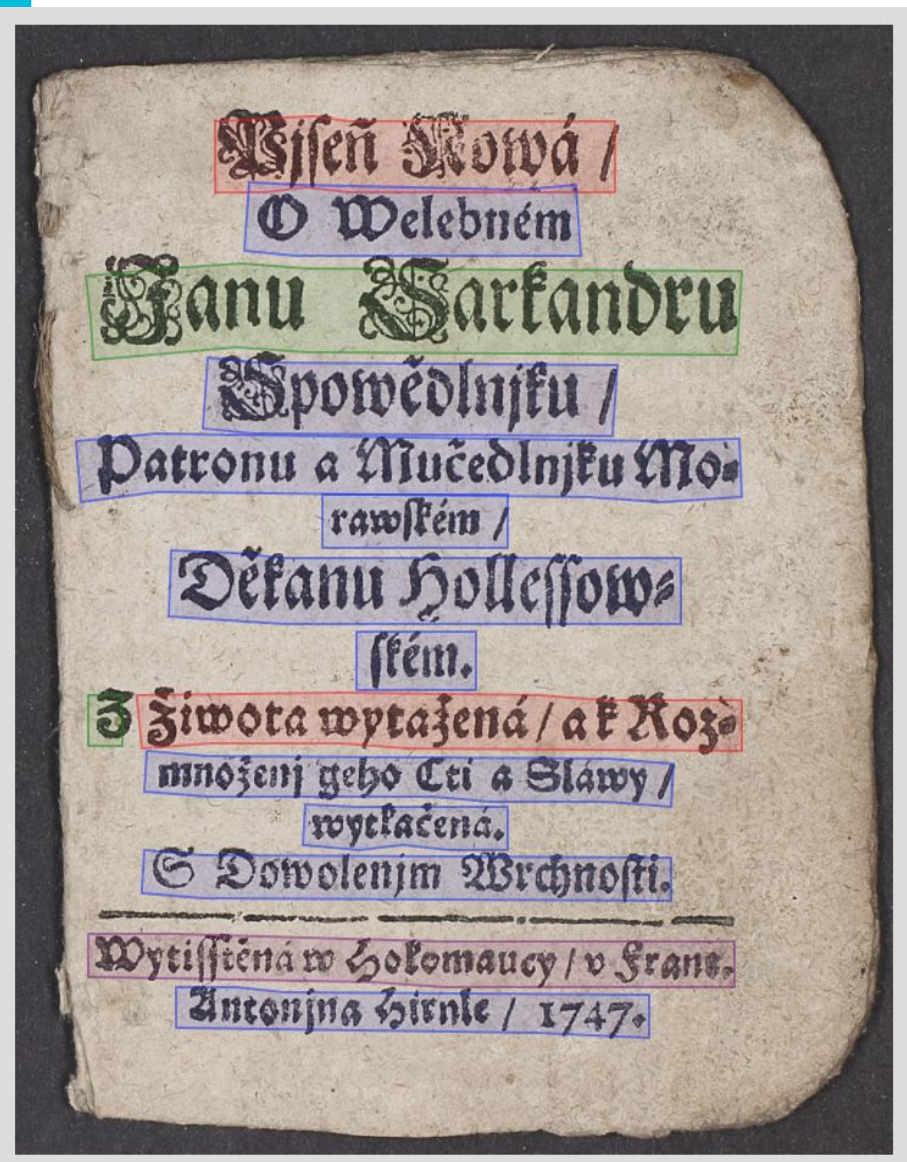 Pjseň Nowá /
O Welebném
Janu Sarkandru
Spowědlnjku /
Patronu a Mučedlnjku Mo-
rawském /
Děkanu Hollessow-
ském.
Z Žiwota wytažená / a k Roz-
množenj geho Cti a Sláwy /
wytlačená.
S Dowolenjm Wrchnosti.
Wytisstěná w Holomaucy / v Frant.
Antonjna Hirnle / 1747.